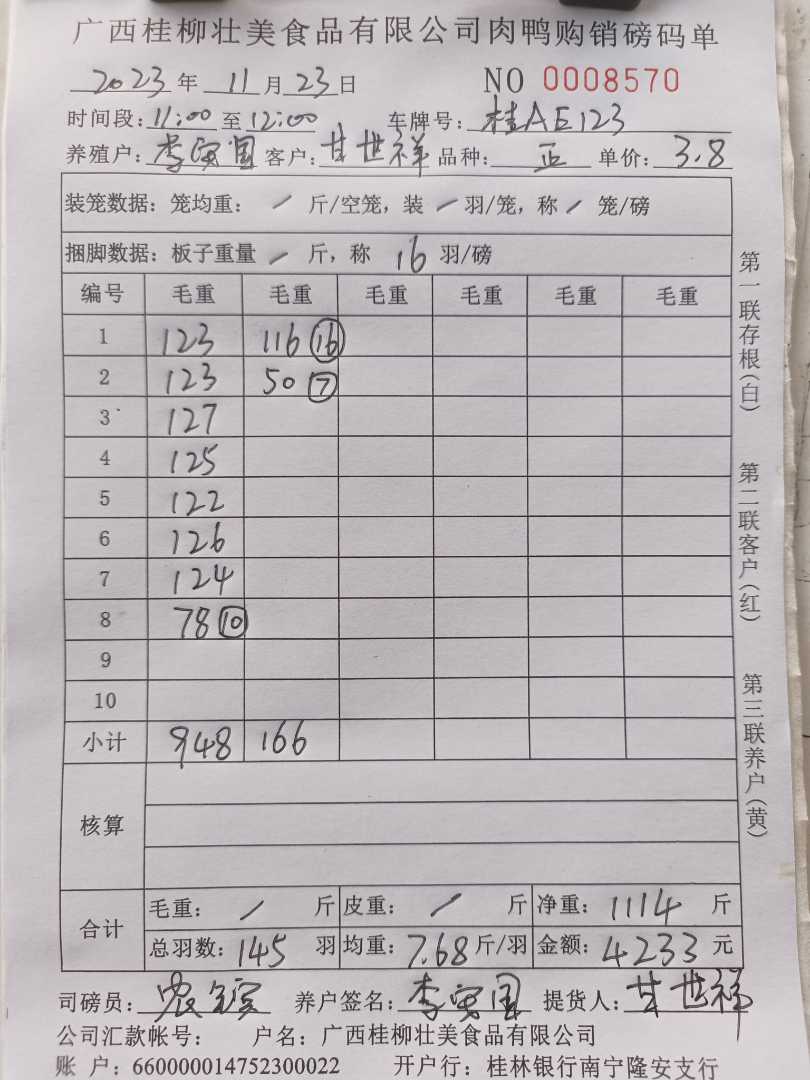 广西桂柳壮美食品有限公司肉鸭购销磅码单
2023年11月23日 NO 0008570
时间段:11:00至12:00 车牌号:桂AE123
养殖户:李寅国 客户:甘世祥 品种:正 单价:3.8
装笼数据:笼均重: / 斤/空笼,装 / 羽/笼,称 / 笼/磅
捆脚数据:板子重量 / 斤,称 16 羽/磅
编号 毛重 毛重 毛重 毛重 毛重 毛重
1 123 116 ⑯
2 123 50 ⑦
3 127
4 125
5 122
6 126
7 124
8 78 ⑩
9
10
小计 948 166
核算
合计 毛重: / 斤 皮重: / 斤 净重:1114 斤
总羽数:145 羽 均重:7.68 斤/羽 金额:4233 元
司磅员: 养户签名:李寅国 提货人:甘世祥
公司汇款帐号: 户名:广西桂柳壮美食品有限公司
账 户:660000014752300022 开户行:桂林银行南宁隆安支行
第一联存根(白)
第二联客户(红)
第三联养户(黄)